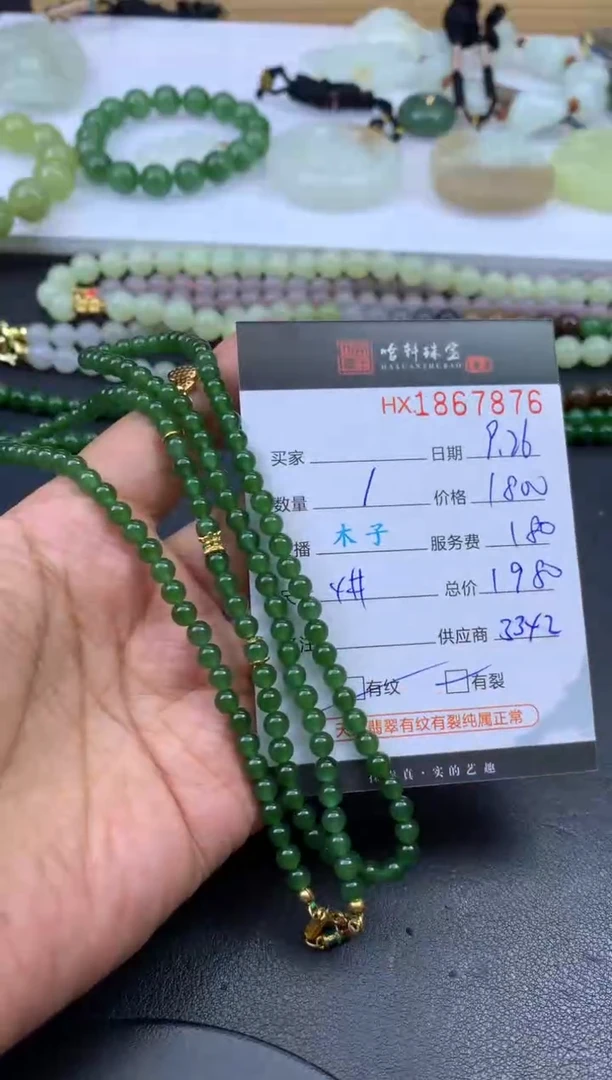 哈轩珠宝
HAXUANZHUBAO
HX.1867876
买家 日期 9.26
数量 1 价格 1800
播 木子 服务费 180
4# 总价 1980
注 供应商 3342
有纹 有裂
天 翡翠有纹有裂纯属正常
真·实的艺趣